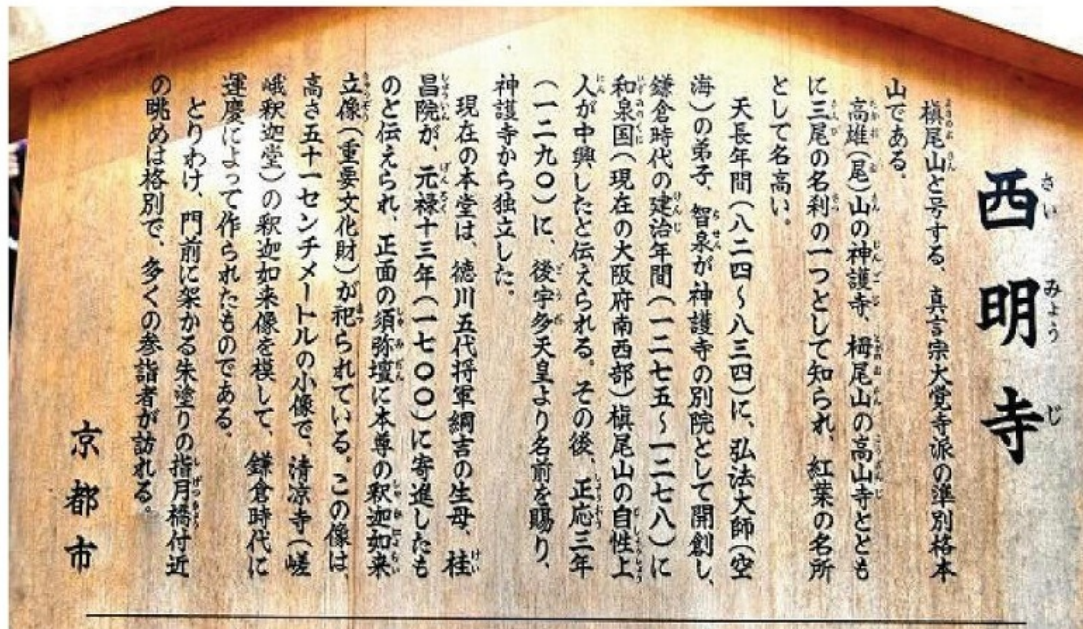 西明寺
槇尾山と号する、真言宗大覚寺派の準別格本
山である。
高雄(尾)山の神護寺、栂尾山の高山寺ととも
に三尾の名刹の一つとして知られ、紅葉の名所
として名高い。
天長年間(八二四〜八三四)に、弘法大師(空
海)の弟子、智泉が神護寺の別院として開創し、
鎌倉時代の建治年間(一二七五〜一二七八)に
和泉国(現在の大阪府南西部)槇尾山の自性上
人が中興したと伝えられる。その後、正応三年
(一二九〇)に、後宇多天皇より名前を賜り、
神護寺から独立した。
現在の本堂は、徳川五代将軍綱吉の生母、桂
昌院が、元禄十三年(一七〇〇)に寄進したも
のと伝えられ、正面の須弥壇に本尊の釈迦如来
立像(重要文化財)が祀られている。この像は、
高さ五十一センチメートルの小像で、清凉寺(嵯
峨釈迦堂)の釈迦如来像を模して、鎌倉時代に
運慶によって作られたものである。
とりわけ、門前に架かる朱塗りの指月橋付近
の眺めは格別で、多くの参詣者が訪れる。
京都市